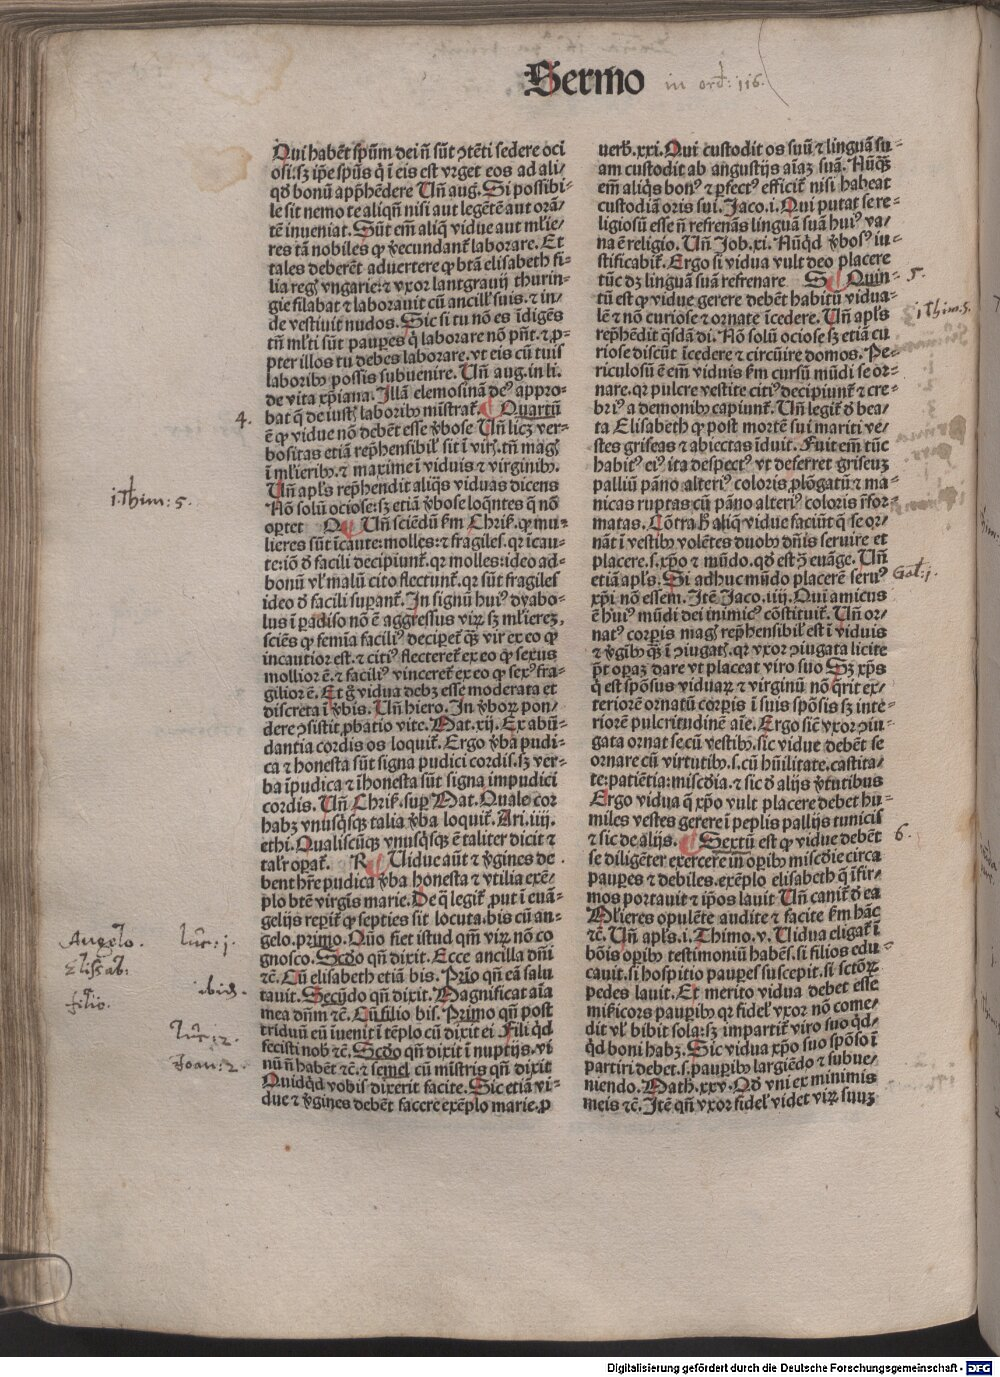 Sermo in ord: 116.
Qui habēt spūm dei nō sūt ꝯtēti sedere oci
osi: sꝫ ip̄e spūs q̇ ī eis est vrget eos ad ali/
qđ bonū app̄hēdere Vñ aug. Si possibi-
le sit nemo te aliqñ nisi aut legētē aut orā/
tē inueniat. Sūt em̄ aliq̄ vidue aut ml̄ie/
res tā nobiles ꝙ v̄ecundant̄ laborare. Et
tales deberēt aduertere ꝙ btā elisabeth fi-
lia regꝭ vngarie: ⁊ vxor lantgrauij thurin-
gie filabat ⁊ laborauit cū ancillꝭ suis. ⁊ in/
de vestiuit nudos. Sic si tu nō es īdigēs
tñ ml̄ti sūt paupes q̇ laborare nō pñt. ⁊ ꝓ-
pter illos tu debes laborare. vt eis cū tuis
laboribꝫ possis subuenire. Vñ aug. in li.
de vita xp̄iana. Illā elemosinā deꝰ appro-
bat q̄ de iustꝭ laboribꝫ mīstrat̄. Quartū
4.
ē ꝙ vidue nō debēt esse v̄bose Vñ licꝫ ver-
bositas etiā rep̄hensibilꝭ sit ī virꝭ. tñ magꝭ
ī ml̄ieribꝫ. ⁊ maxime ī viduis ⁊ virginibꝫ.
Vñ apl̄s rep̄hendit aliq̄s viduas dicens
i Thim: 5.
Nō solū ociose: sꝫ etiā v̄bose loq̄ntes q̄ nō
oportet Q Vñ sciēdū km̄ Chriſ. ꝙ mu-
lieres sūt īcaute: molles: ⁊ fragiles. qr īcau-
te: iō đ facili decipiunt̄. qr molles: ideo ad-
bonū vl̄ malū cito flectunt̄. qr sūt fragiles
ideo đ facili supant̄. In signū huiꝰ dyabo-
lus ī padiso nō ē aggressus virꝫ sꝫ ml̄ierez,
sciēs ꝙ femīa faciliꝰ deciperet̄ q̄ꝫ vir ex eo ꝙ
incautior est. ⁊ citiꝰ flecteret̄ ex eo ꝙ sexus
mollior ē. ⁊ faciliꝰ vinceret̄ ex eo ꝙ sexꝰ fra-
gilior ē. Et ḡ vidua debꝫ esse moderata et
discreta ī v̄bis. Vñ hiero. In v̄boꝝ pon/
dere ꝯsistit ꝓbatio vite. Mat. xij. Ex abū-
dantia cordis os loquit̄. Ergo v̄ba pudi-
ca ⁊ honesta sūt signa pudici cordis. sꝫ ver-
ba īpudica ⁊ īhonesta sūt signa impudici
cordis. Vñ Chriſ. suꝑ Mat. Quale cor
habꝫ vnusq̇sqꝫ talia v̄ba loquit̄. Ari. iiij.
ethi. Qualiscūqꝫ vnusq̇sqꝫ ē taliter dicit ⁊
talr̄ operat̄. R Vidue aūt ⁊ v̄gines de
bent hr̄e pudica v̄ba honesta ⁊ vtilia exē-
plo btē virgīs marie. De q̄ legit̄ ꝓut ī euā-
gelijs reperit̄ ꝙ septies sit locuta. bis cū an-
Angelo. Luc: j.
gelo. primo. Qūo fiet istud qm̄ virꝫ nō co
Elisab:
gnosco. Scđo qñ dixit. Ecce ancilla dñi
ibid.
⁊c̄. Cū elisabeth etiā bis. Prīo qñ eā salu
tauit. Secūdo qñ dixit. Magnificat aīa
filio.
mea dn̄m ⁊c̄. Cū filio bis. Primo qñ post
Luc: 2.
triduū eū inuenit ī tēplo cū dixit ei Fili q̇d
fecisti nobꝭ ⁊c̄. Scđo qñ dixit ī nuptijs. vi
Joan: 2.
nū ñ habēt ⁊c̄. ⁊ semel cū mistris qñ dixit
Quidq̇d vobis dixerit facite. Sic etiā vi-
due ⁊ v̄gines debēt facere exēplo marie. ꝓ
uerb. xxi. Qui custodit os suū ⁊ linguā su-
am custodit ab angustijs aīaꝫ suā. Nūq̄ꝫ
em̄ aliq̇s bonꝰ ⁊ perfectꝰ efficit̄ nisi habeat
custodiā oris sui. Jaco. i. Qui putat se re-
ligiosū esse ñ refrenās linguā suā huiꝰ va/
na ē religio. Vñ Job. xi. Nūq̇d v̄bosꝰ iu-
stificabit̄. Ergo si vidua vult deo placere
tūc dꝫ linguā suā refrenare S Quin-
5.
tū est ꝙ vidue gerere debēt habitū vidua-
i Thim. 5.
lē ⁊ nō curiose ⁊ ornate īcedere. Vñ apl̄s
rep̄hēdit q̇sdā di. Nō solū ociose sꝫ etiā cu
riose discūt īcedere ⁊ circūire domos. Pe-
riculosū ē em̄ viduis km̄ cursū mūdi se or-
nare. qr pulcre vestite citiꝰ decipiunt̄ ⁊ cre-
briꝰ a demonibꝫ capiunt̄. Vñ legit̄ đ bea/
ta Elisabeth ꝙ post mortē sui mariti ve/
stes griseas ⁊ abiectas īduit. Fuit em̄ tūc
habitꝰ eiꝰ ita despectꝰ vt deferret griseuꝫ
palliū pāno alteriꝰ coloris ꝓlōgatū ⁊ ma-
nicas ruptas cū pāno alteriꝰ coloris r̄for-
matas. Cōtra ħ aliq̄ vidue faciūt q̄ se or-
nāt ī vestibꝫ volētes duobꝫ dn̄is seruire et
placere. s. xp̄o ⁊ mūdo. qđ est ꝯ̄ euāge. Vñ
etiā apl̄s. Si adhuc mūdo placerē seruꝰ
Gal: j.
xp̄i nō essem. Itē Jaco. iiij. Qui amicus
ē huiꝰ mūdi dei inimicꝰ cōstituit̄. Vñ or/
natꝰ corpis magꝭ rep̄hensibilꝭ est ī viduis
⁊ v̄gībꝫ q̄ꝫ ī ꝯiugatꝭ. qr vxor ꝯiugata licite
p̄t operaꝫ dare vt placeat viro suo Sꝫ xp̄s
q̇ est spōsus viduaꝝ ⁊ virginū nō q̄rit ex/
teriorē ornatū corpis ī suis spōsis sꝫ inte-
riorē pulcritudinē aīe. Ergo sic̄ vxor ꝯiu-
gata ornat se cū vestibꝫ. sic vidue debēt se
ornare cū virtutibꝫ. s. cū hūilitate. castita-
te: patiētia: misc̄dia. ⁊ sic đ alijs v̄tutibus
Ergo vidua q̄ xp̄o vult placere debet hu-
miles vestes gerere ī peplis pallijs tunicis
⁊ sic de alijs. Sextū est ꝙ vidue debēt
6.
se diligēter exercere in operibꝫ misc̄die circa
paupes ⁊ debiles. exēplo elisabeth q̄ īfir-
mos portauit ⁊ ip̄os lauit Vñ canit̄ đ ea
Ml̄ieres opulēte audite ⁊ facite km̄ hāc
⁊c̄. Vñ apl̄s. i. Thimo. v. Vidua eligat̄ ī
bōis operibꝫ testimoniū habēs. si filios edu-
cauit. si hospitio pauperꝭ suscepit. si sctōꝝ
pedes lauit. Et merito vidua debet esse
misericors pauperibꝫ qr fidelꝭ vxor nō come/
dit vl̄ bibit sola: sꝫ impartit̄ viro suo qđ/
q̇d boni habꝫ. Sic vidua xp̄o suo spōso ī
partiri debet. s. pauperibꝫ largiēdo ⁊ subue/
niendo. Math. xxv. Qđ vni ex minimis
meis ⁊c̄. Itē qñ vxor fidelꝭ videt virꝫ suuꝫ
Digitalisierung gefördert durch die Deutsche Forschungsgemeinschaft - DFG